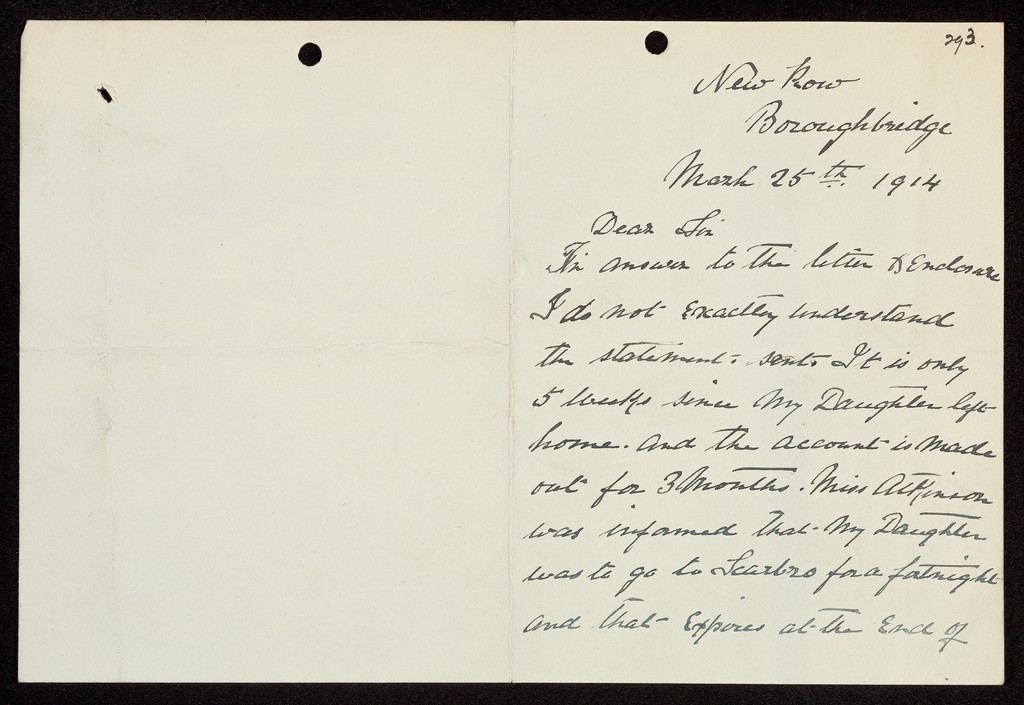 293.
New Row
Boroughbridge
March 25th. 1914
Dear Sir
In answer to the letter & Enclosure
I do not Exactly understand
the statement. sent. It is only
5 Weeks since My Daughter left
home. and the account is Made
out for 3 Months. Miss Atkinson
was informed that My Daughter
was to go to Scarbro for a fortnight
and that Expires at the End of